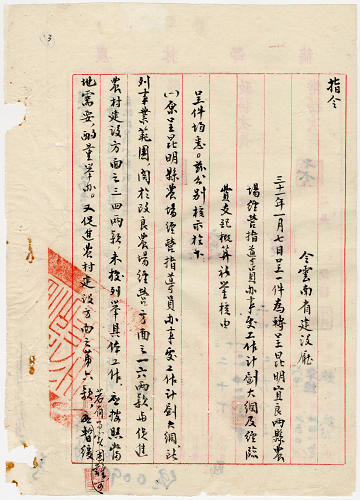 指令
令雲南省建設廳
三十一年一月七日呈一件為轉呈昆明宜良兩縣農
場經營指導員办事處工作計劃大綱及經臨
費支配概算祈鑒核由
呈件均悉。茲分別核示於下
(一)原呈昆明縣農場經營指導員办事處工作計劃大綱所
列事業範圍関於改良農場經營方面之一六兩款與促進
農村建設方面之三四兩款未據列舉具体工作應按照當
地需要酌量舉办。又促進農村建設方面之第六款
若有事實困難可
應暫緩
3